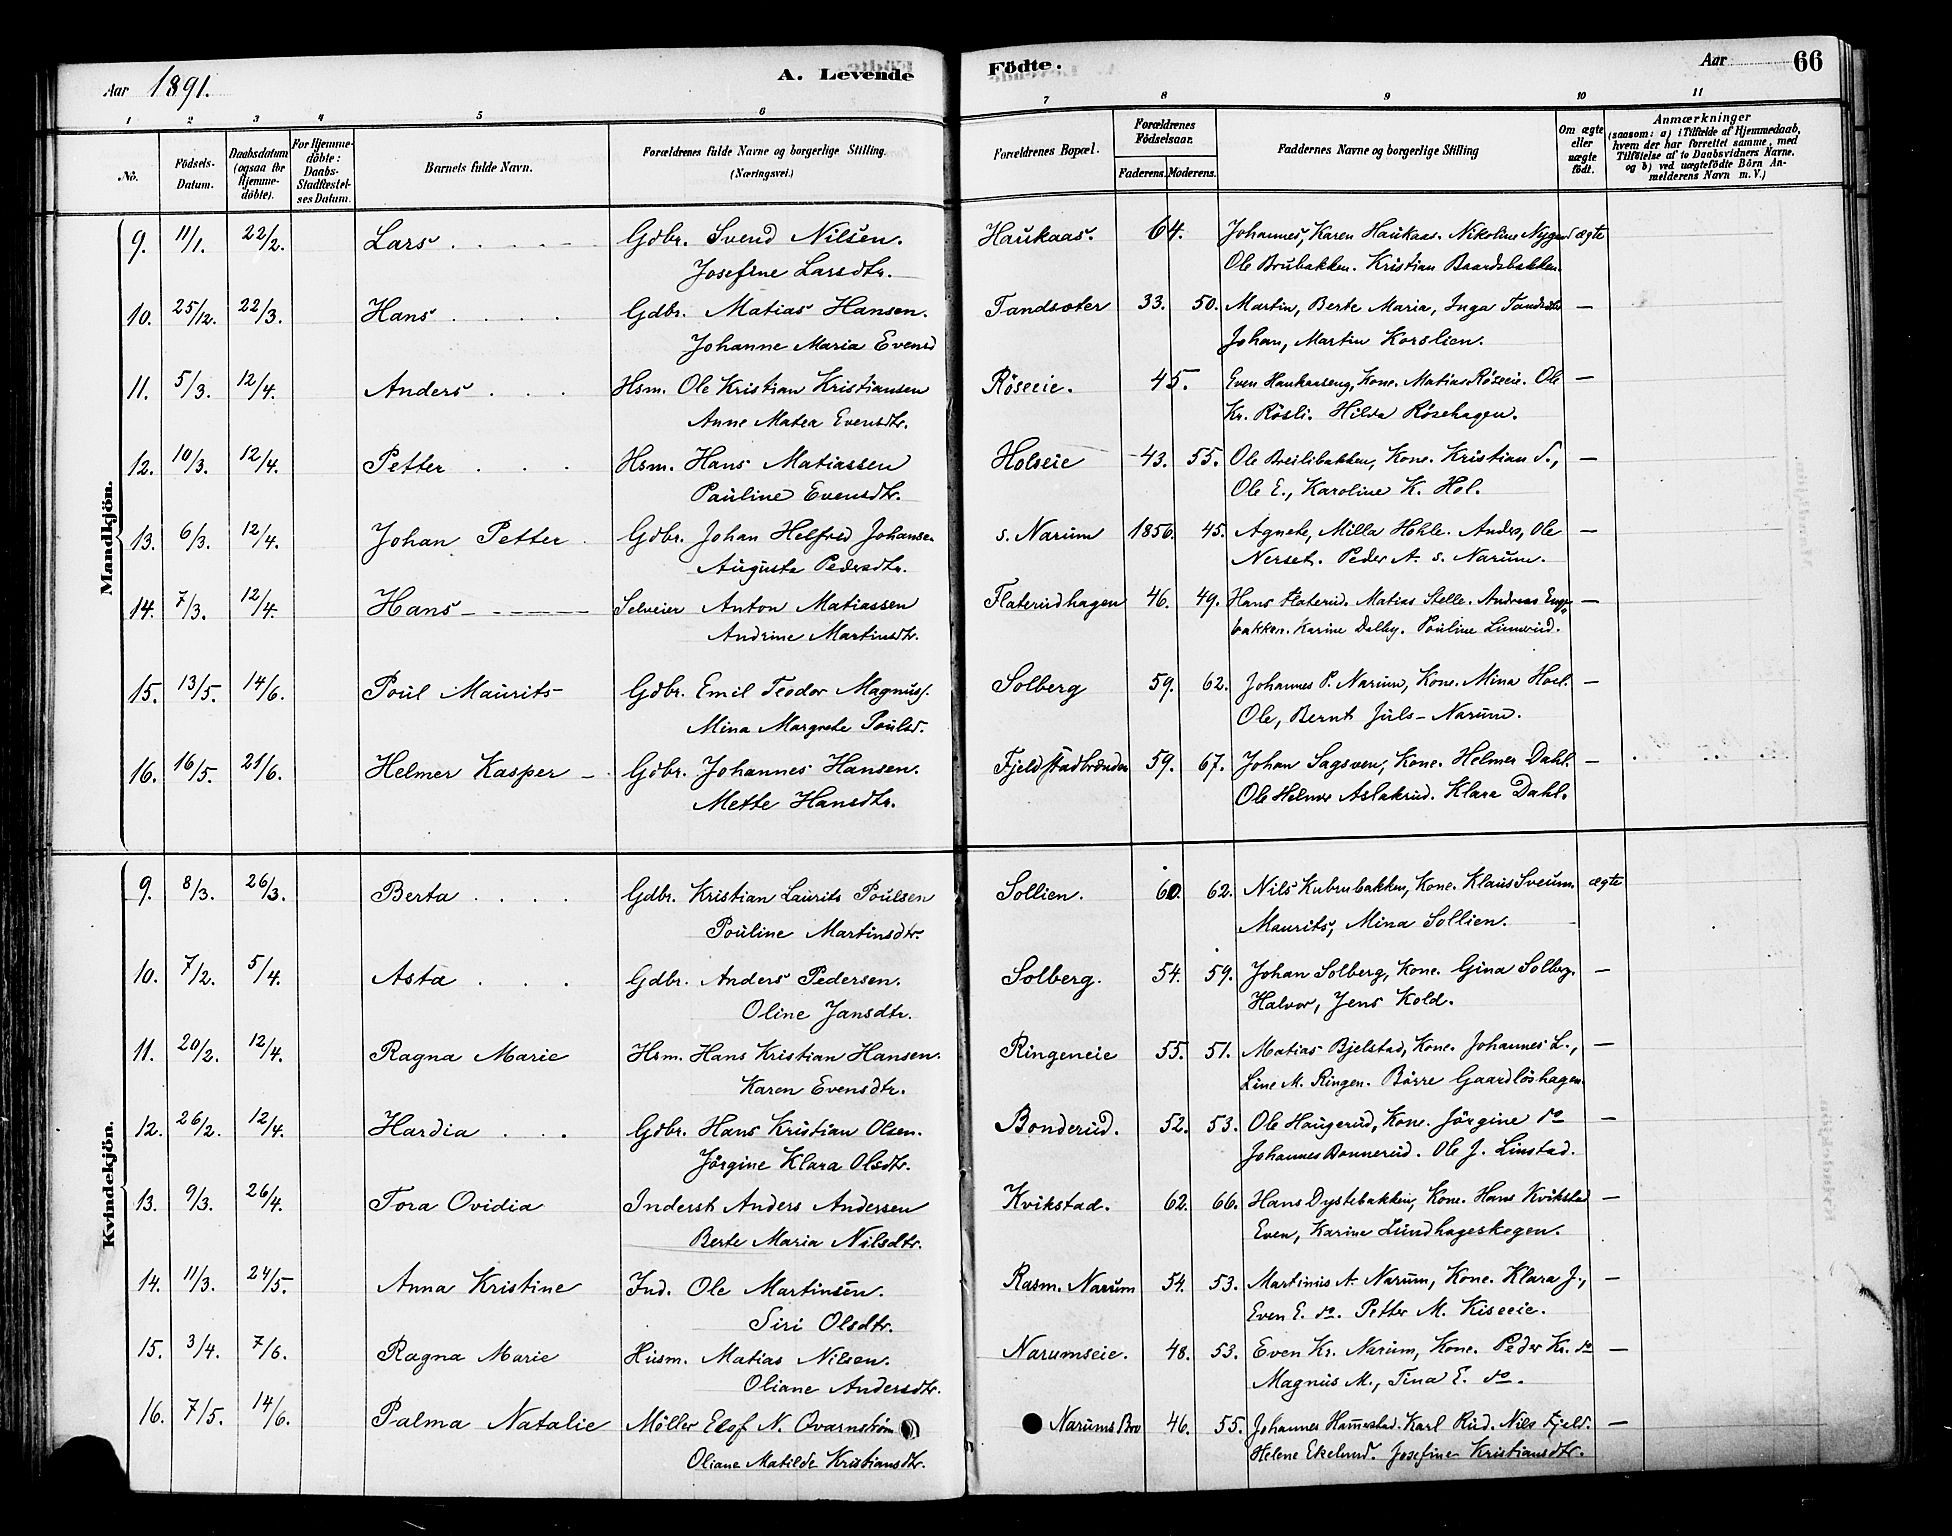 Aar 1891.
A. Levende
Födte.
Aar
66
1 2 3 4 5 6 7 8 9 10 11
No.
Födsels-Datum.
Daabsdatum (ogsaa for Hjemme-döbte).
For Hjemme-döbte: Daabs-Stadfæstel-ses Datum.
Barnets fulde Navn.
Forældrenes fulde Navne og borgerlige Stilling. (Næringsvei.)
Forældrenes Bopæl.
Forældrenes Födselsaar.
Faderens. Moderens.
Faddernes Navne og borgerlige Stilling
Om ægte eller uægte födt.
Anmærkninger
(saasom: a) i Tilfælde af Hjemmedaab, hvem der har forrettet samme, med Tilföielse af to Daabsvidners Navne. og b) ved uægtefödte Börn An-melderens Navn m. V.)
Mandkjön.
9. 11/1. 22/2. Lars Gdbr. Svend Nilsen. Haukaas. 64. Johannes, Karen Haukaas. Nikoline Nygaard ægte
Josefine Larsdtr. Ole Brubakken. Kristian Baardsbakken.
10. 25/12. 22/3. Hans Gdbr. Matias Hansen. Tandsæter 33. 50. Martin, Berte Maria, Inga Tandsæter —
Johanne Maria Evensd Johan, Martin Korslien.
11. 5/3. 12/4. Anders Hsm. Ole Kristian Kristiansen Röseeie. 45. Even Haukaaseng, Kone. Matias Röseeie. Ole —
Anne Matea Evensdtr. Kr. Rösli. Hilda Rösehagen.
12. 10/3. 12/4. Petter Hsm. Hans Matiassen Holseie 43. 55. Ole Breilibakken, Kone. Kristian S., —
Pauline Evensdtr. Ole E., Karoline K. Hol.
13. 6/3. 12/4. Johan Petter Gdbr. Johan Helfred Johansen s. Narum 1850. 45. Agnete, Milla Hohle. Anders, Ole —
Augusta Pedersdtr. Nerset. Peder A. s. Narum.
14. 7/3. 12/4. Hans Selveier Anton Matiassen Flaterudhagen 46. 49. Hans Flaterud. Matias Stelle. Andreas Enge- —
Andrine Martinsdtr. bakken. Karine Dalby. Pouline Limerud.
15. 13/5. 14/6. Poul Maurits Gdbr. Emil Teodor Magnus. Solberg 59. 62. Johannes P. Narum, Kone. Mina Hoel. —
Mina Margrete Poulsd. Ole, Bernt Juls-Narum.
16. 16/5. 21/6. Helmer Kasper Gdbr. Johannes Hansen. Fjeldstadbrænden 59. 67. Johan Sagsveen, Kone. Helmer Dahl. —
Mette Hansdtr. Ole Helmer Aslakrud. Klara Dahl.
Kvindekjön.
9. 8/3. 26/3. Berta Gdbr. Kristian Laurits Poulsen Sollien. 60. 62. Nils Kubrubakken, Kone. Klaus Sveum. ægte
Pouline Martinsdtr. Maurits, Mina Sollien.
10. 7/2. 5/4. Asta Gdbr. Anders Pedersen. Solberg. 54. 59. Johan Solberg, Kone. Gina Solberg. —
Oline Jansdtr. Halvor, Jens Kold.
11. 20/2. 12/4. Ragna Marie Hsm. Hans Kristian Hansen. Ringeneie 55. 51. Matias Bjelstad, Kone. Johannes L., —
Karen Evensdtr. Line M. Ringen. Börre Gaardlöshagen
12. 26/2. 12/4. Hardia Gdbr. Hans Kristian Olsen. Bonderud. 52. 53. Ole Haugerud, Kone. Jörgine do —
Jörgine Klara Olsdtr. Johannes Bonnerud. Ole J. Linstad.
13. 9/3. 26/4. Tora Ovidia Inderst Anders Andersen Kvikstad. 62. 66. Hans Dystebakken, Kone. Hans Kvikstad —
Berte Maria Nilsdtr. Even, Karine Lundhageskogen.
14. 11/3. 24/5. Anna Kristine Ind. Ole Martinsen. Rasm. Narum 54. 53. Martinus A. Narum, Kone. Klara J., —
Siri Olsdtr. Even E. do. Petter M. Kiseeie.
15. 3/4. 7/6. Ragna Marie Husm. Matias Nilsen. Narumseie. 48. 53. Even Kr. Narum, Kone. Peder Kr. do —
Oliane Andersdtr. Magnus M., Tina E. do.
16. 7/5. 14/6. Palma Natalie Möller Elof N. Qvarnström Narums Bro 46. 55. Johannes Hammestad. Karl Rud. Nils Fjeld. —
Oliane Matilde Kristiansdtr. Helene Ekelund. Josefine Kristiansdtr.